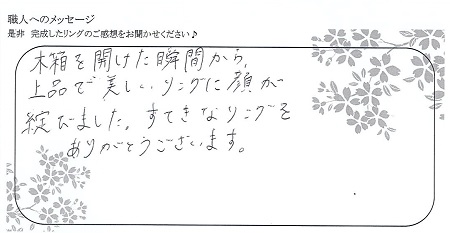 職人へのメッセージ
是非 完成したリングのご感想をお聞かせください♪
木箱を開けた瞬間から、
上品で美しいリングに顔が
綻びました。すてきなリングを
ありがとうございます。